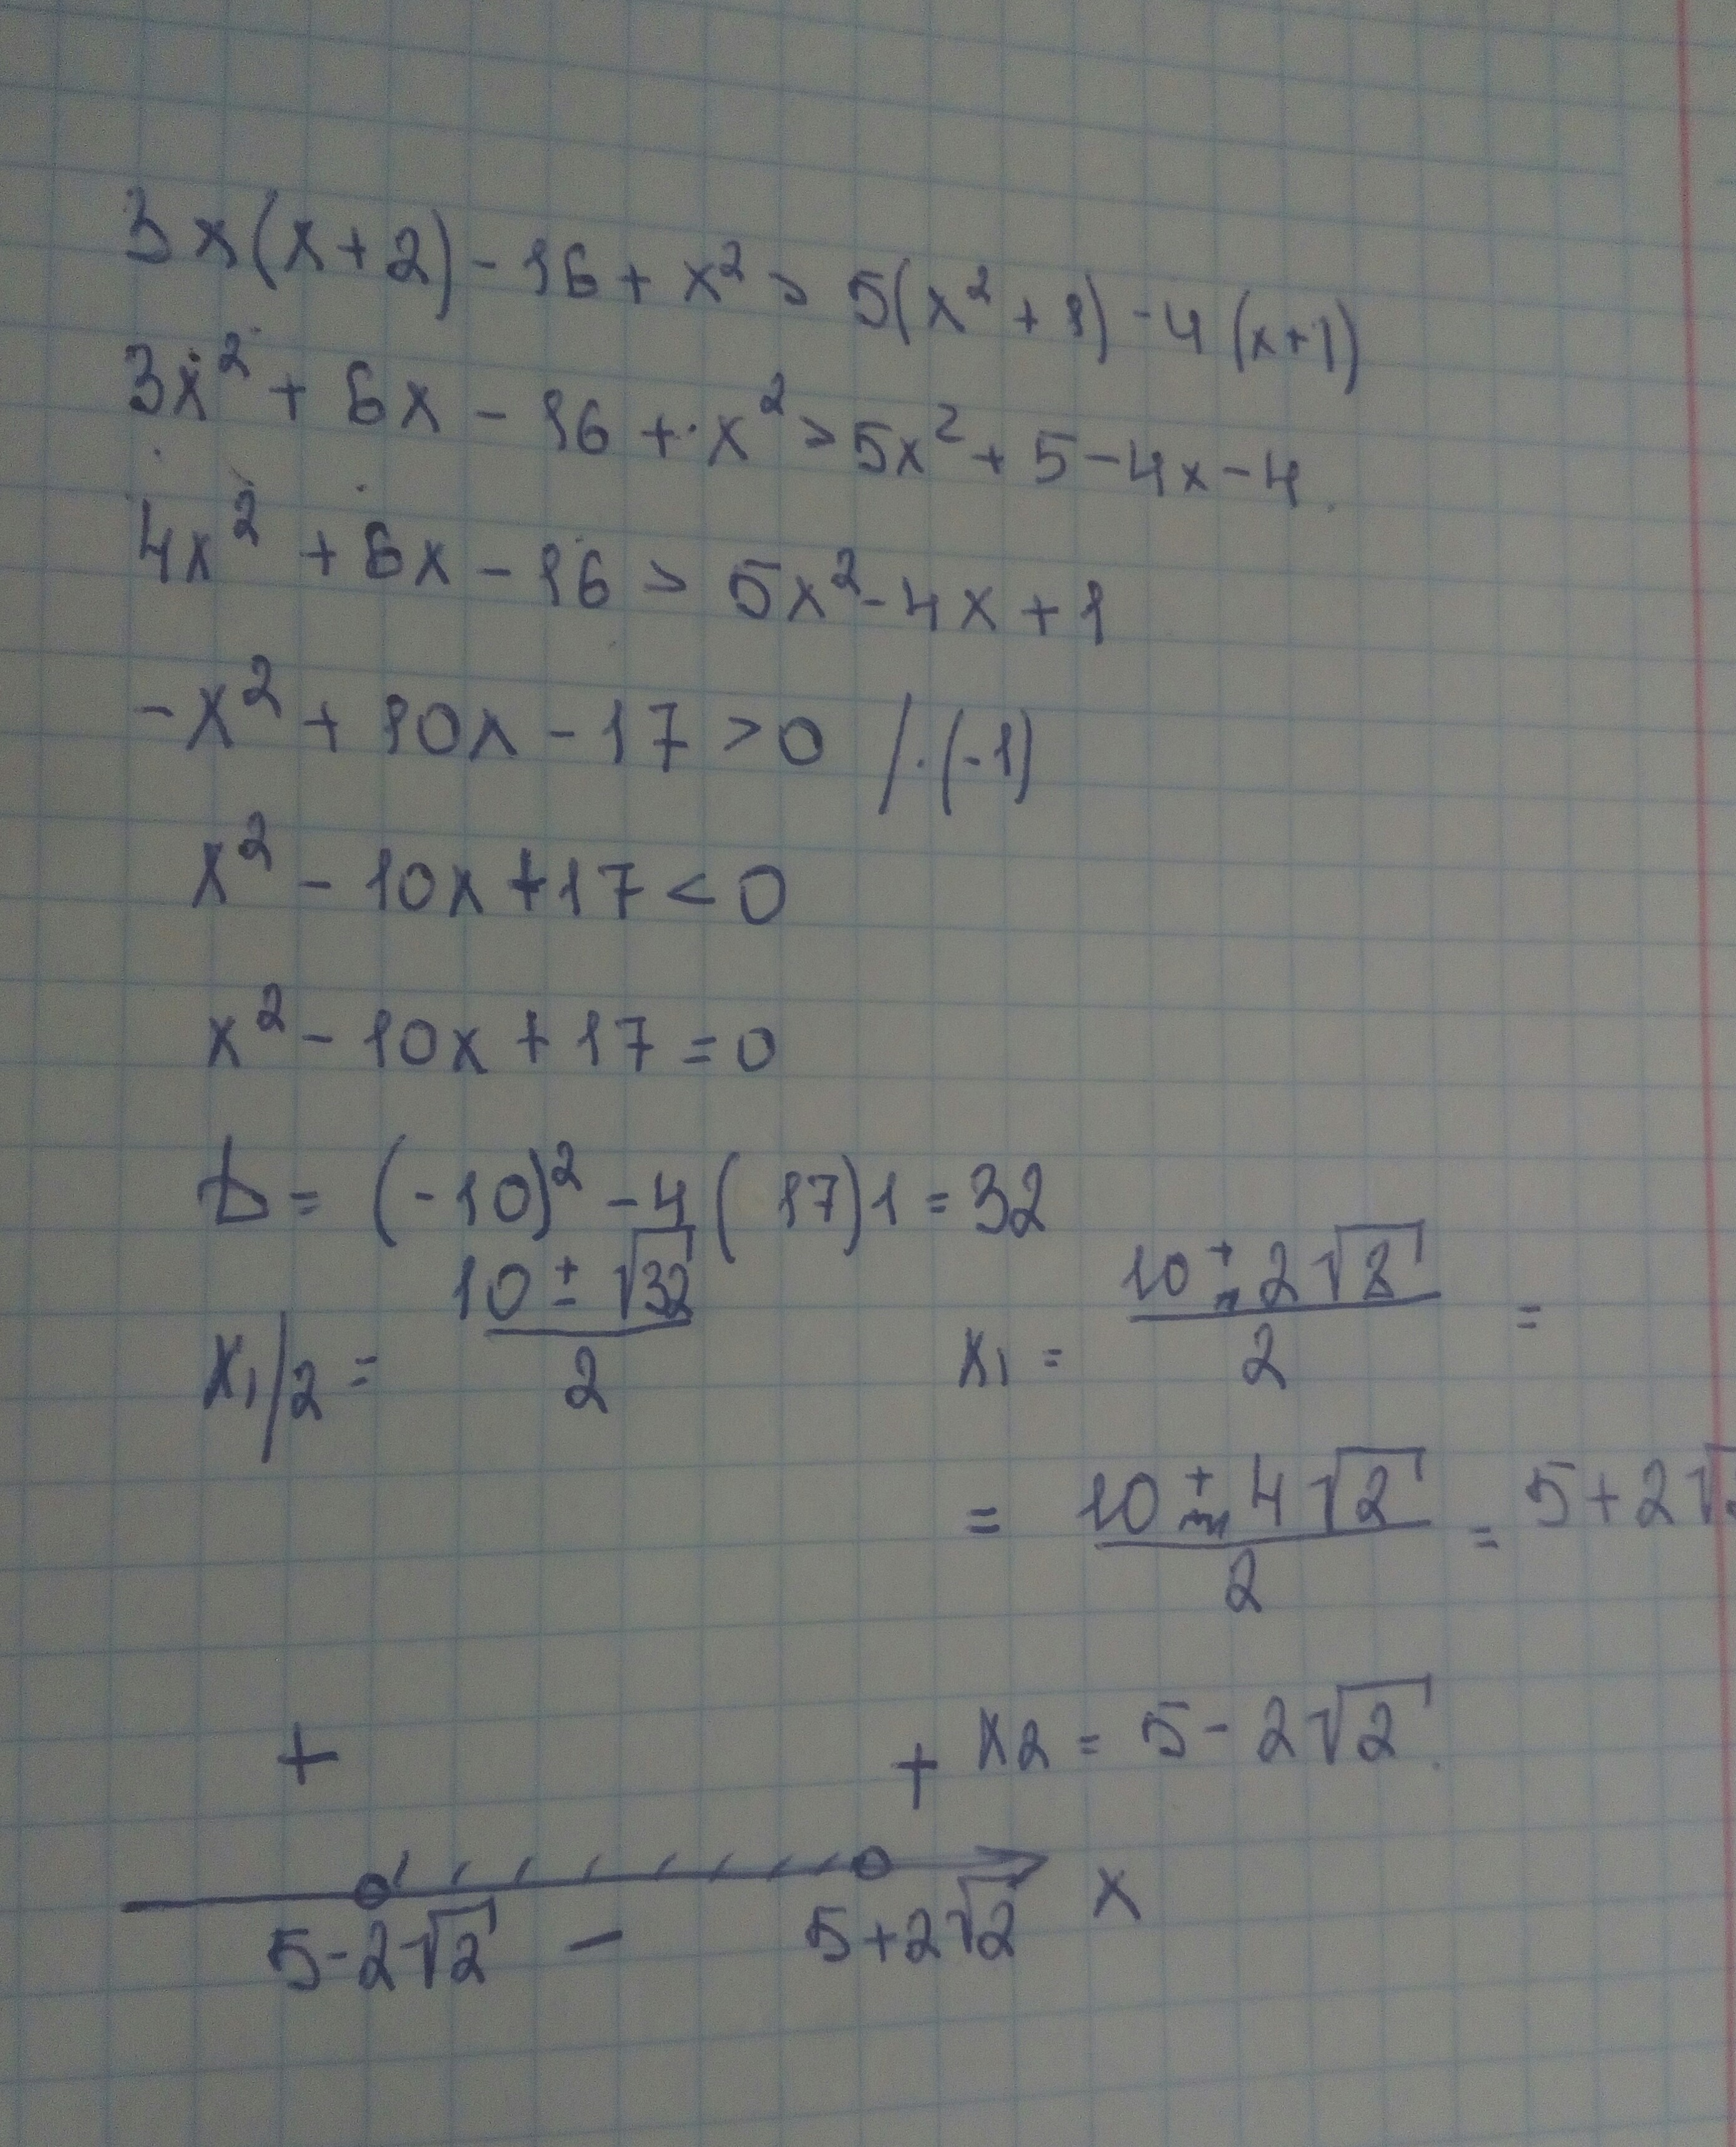 3x(x+2)-16+x² > 5(x²+1)-4(x+1)
3x²+6x-16+x² > 5x²+5-4x-4.
4x²+6x-16 > 5x²-4x+1
-x²+10x-17 > 0 /·(-1)
x²-10x+17 < 0
x²-10x+17 = 0
D = (-10)²-4(17)1 = 32
x₁/₂ = (10±√32)/2
x₁ = (10+2√8)/2 =
= (10+4√2)/2 = 5+2√2
x₂ = 5-2√2.
+ +
5-2√2 - 5+2√2 x